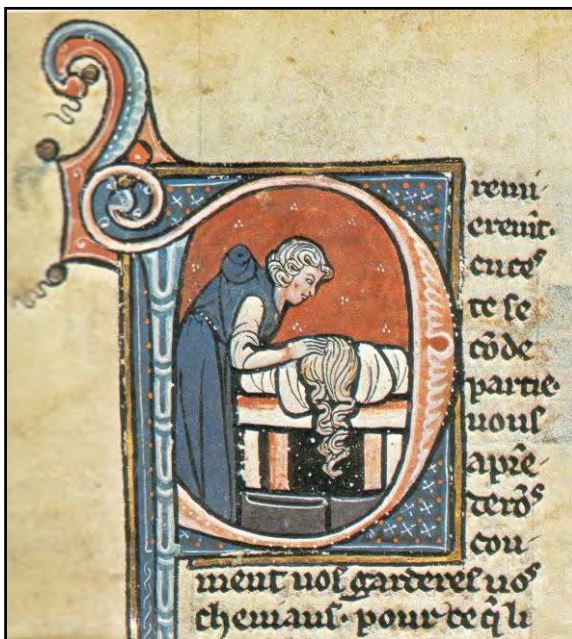 Premi
erem̄t·
en ceˢ
te se
cōde
partie·
uous
aprē
derōˢ
cou
ment uos garderes uoˢ
cheuiaus· pour ce q̄ li